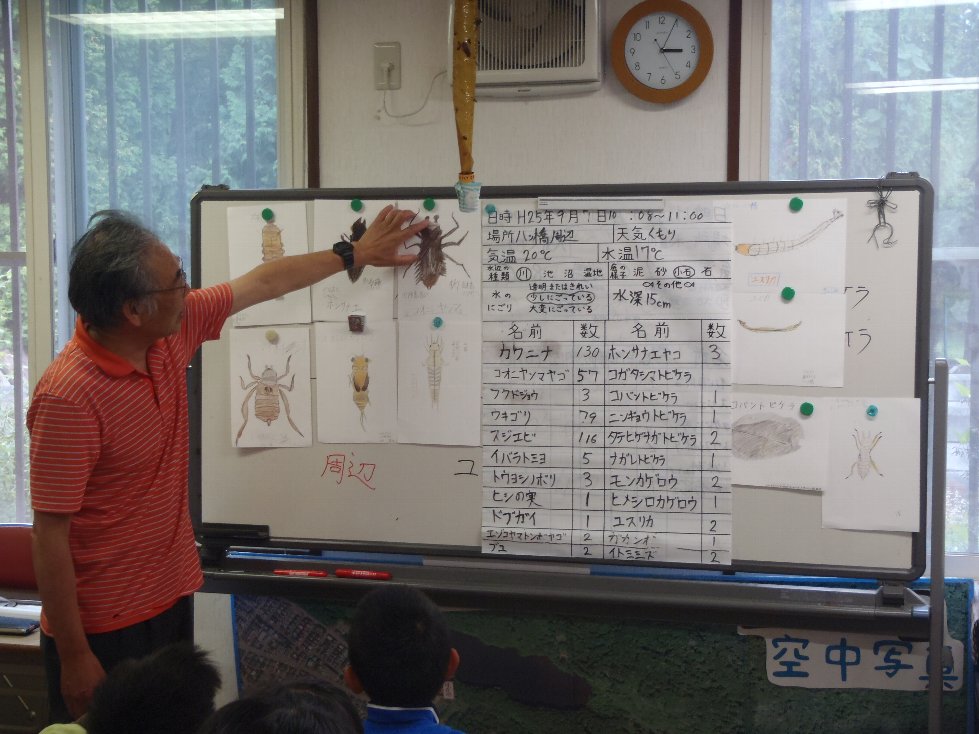 日時 H25年 9月 7日 10:08~11:00
場所 八ッ橋周辺 天気 くもり
気温 20℃ 水温 17℃
水辺の種類 川 池 沼 湿地 底の様子 泥 砂 小石 石
水のにごり 透明またはきれい その他
少しにごっている 水深15cm
大変にごっている
名前 数 名前 数
カワニナ 130 ホンサナエヤコ 3
コオニヤンマヤゴ 57 コガタシマトビケラ
フクドジョウ 3 コバントビケラ 1
ウキゴリ 79 ニンギョウトビケラ 1
スジエビ 116 タテヒゲナガトビケラ 2
イバラトミヨ 5 ナガレトビケラ 1
トウヨシノボリ 3 モンカゲロウ 2
ヒシの実 1 ヒメシロカゲロウ 1
ドブガイ 1 ユスリカ 2
エゾコヤマトンボヤゴ 2 ガガンボ 1
ブユ 2 イトミミズ 2
周辺 ユ
コバントビケラ
空中写真
12 1 2 3 4 5 6 7 8 9 10 11